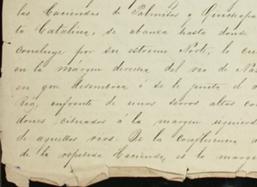 las Haciendas de Palmitos y
la Catalina, se abanza hasta donde
concluye por su estremo Norte, la
en la márgen derecha del rio de
en que desemboca ó se le junta el
enfrente de unos cerros altos con
situados á la márgen
de aquellos rios. De la confluencia
de la espresa Hacienda, es la margen